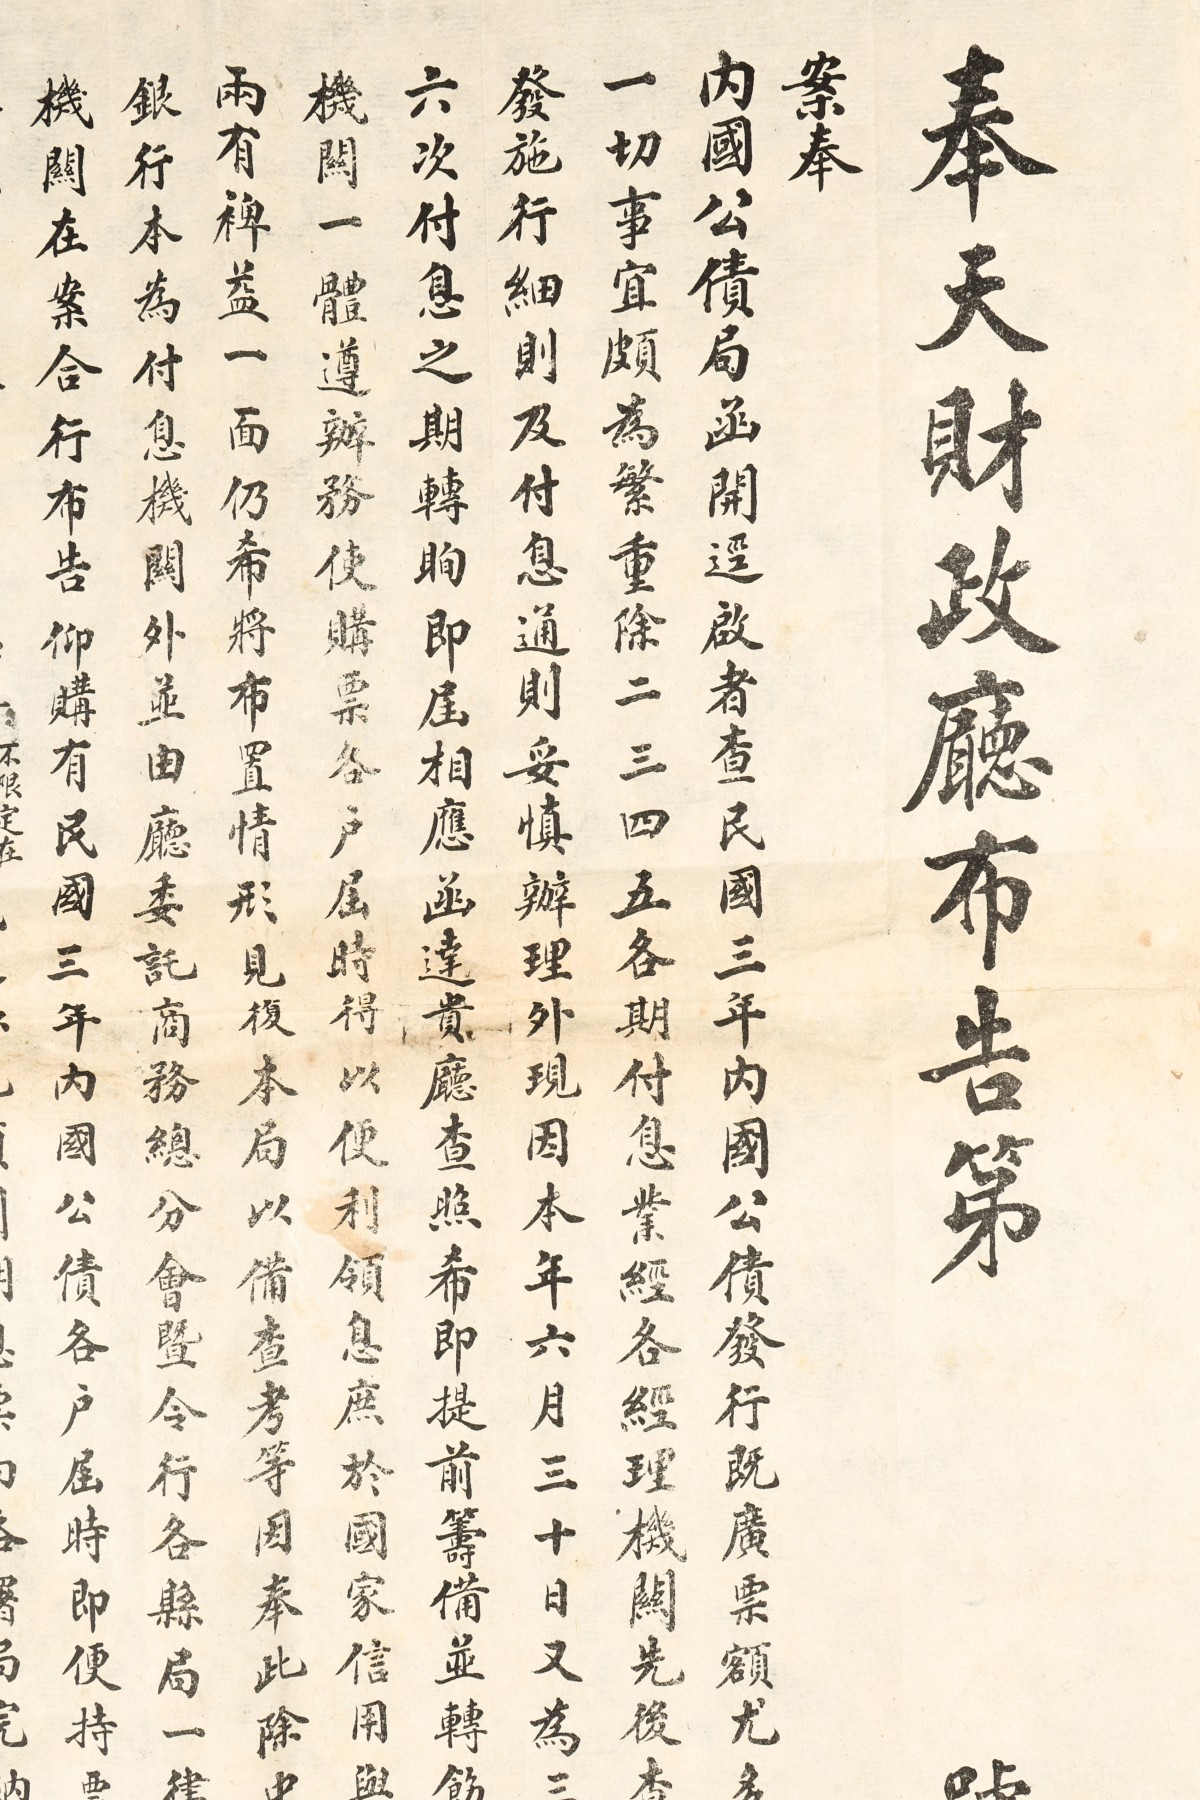 奉天財政廳布告第　號
案奉
內國公債局函開逕啟者查民國三年內國公債發行既廣票額尤多
一切事宜頗為繁重除二三四五各期付息業經各經理機關先後查
發施行細則及付息通則妥慎辦理外現因本年六月三十日又為三
六次付息之期轉眴即屆相應函達貴廳查照希即提前籌備並轉飭
機關一體遵辦務使購票各戶屆時得以便利領息庶於國家信用與
兩有裨益一面仍希將布置情形見復本局以備查考等因奉此除中
銀行本為付息機關外並由廳委託商務總分會暨令行各縣局一律
機關在案合行布告仰購有民國三年內國公債各戶屆時即便持票
不限定在
各署局完納